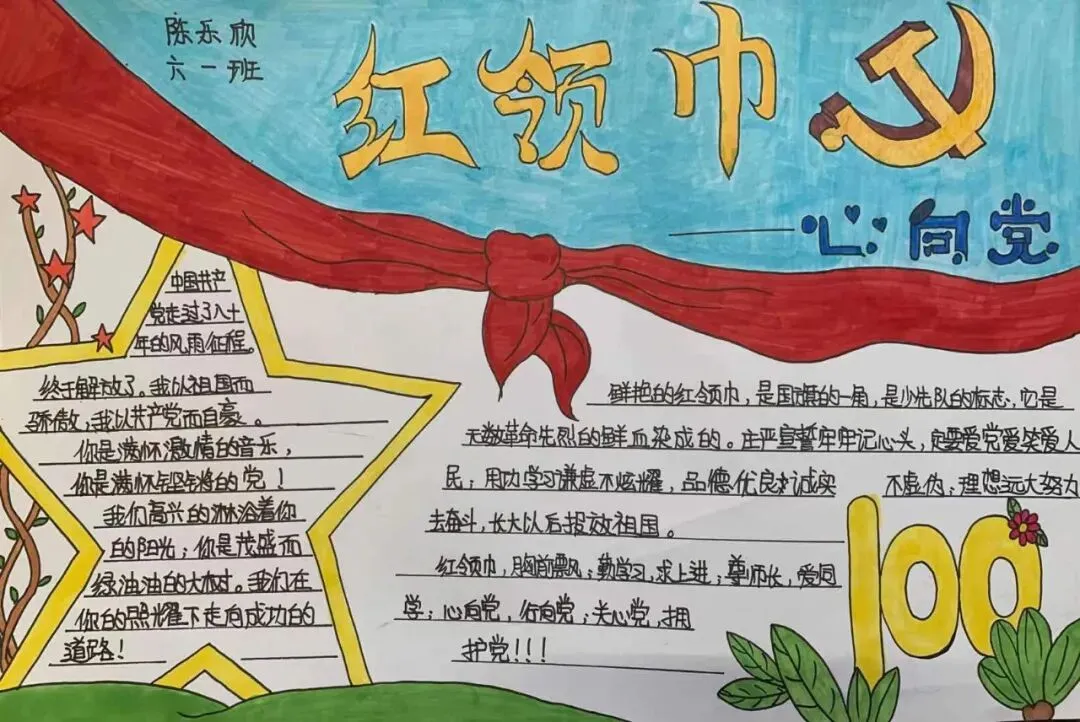 陈乐欣
六一班
红领巾
——心向党
中国共产
党走过了八十
年的风雨征程。
终于解放了。我以祖国而
骄傲,我以共产党而自豪。
你是满怀激情的音乐,
你是满怀坚锵的党!
我们高兴的淋浴着你
的阳光;你是茂盛而
绿油油的大树。我们在
你的照耀下走向成功的
道路!
鲜艳的红领巾,是国旗的一角,是少先队的标志,它是
无数革命先烈的鲜血染成的。庄严宣誓牢牢记心头,定要爱党爱笑爱人
民;用功学习谦虚不炫耀,品德优良讲诚实 不虚伪;理想远大努力
去奋斗,长大以后报效祖国。
红领巾,胸前飘;勤学习,求上进;尊师长,爱同
学;心向党,行向党;关心党,拥
护党!!!
100